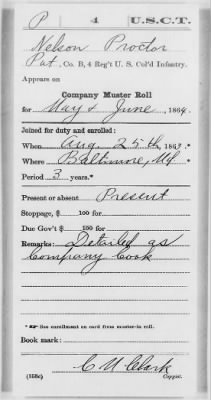 P 4 U.S.C.T.
Nelson Proctor
Pvt., Co. B, 4 Reg't U. S. Col'd Infantry.
Appears on
Company Muster Roll
for May & June, 1864.
Joined for duty and enrolled:
When Aug. 25th, 1863.*
Where Baltimore, Md
Period 3 years.*
Present or absent Present
Stoppage, $ 100 for
Due Gov't $ 100 for
Remarks: Detailed as
Company Cook
* See enrollment on card from muster-in roll.
Book mark:
C U Clark
(358c) Copyist.